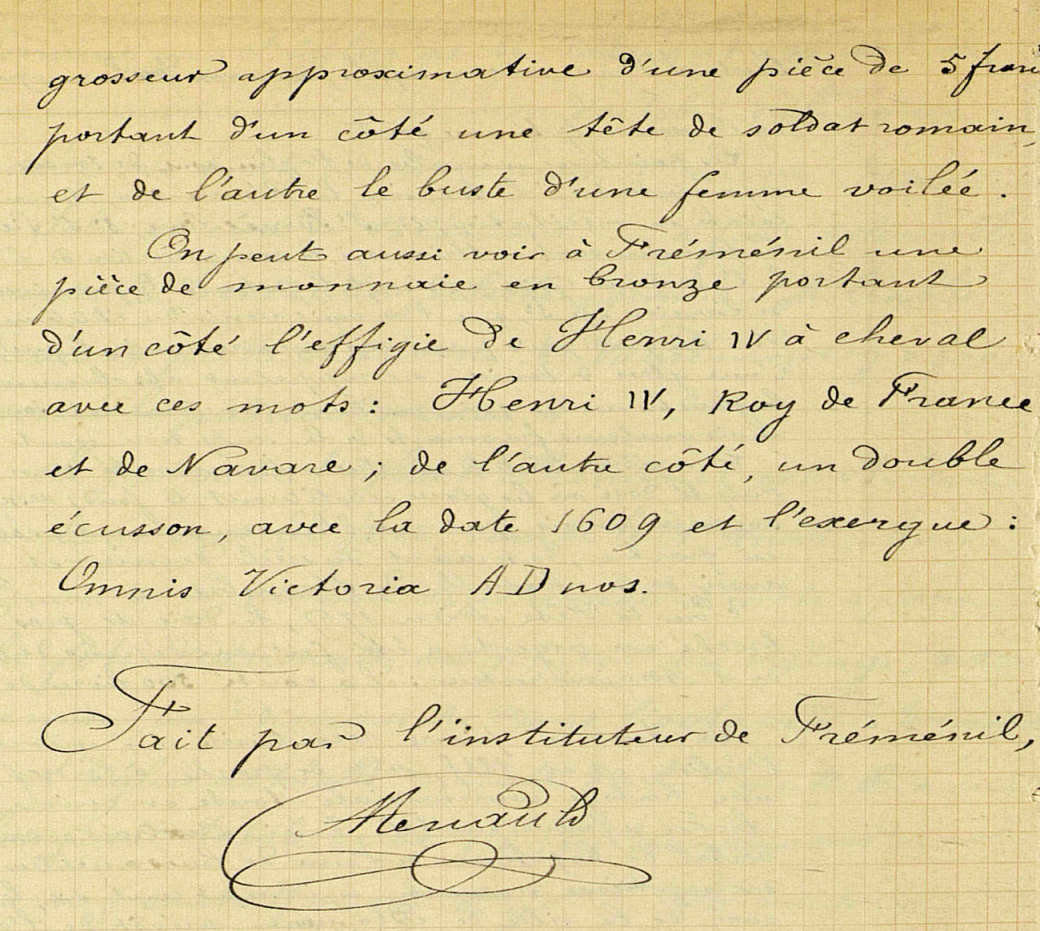 grosseur approximative d'une pièce de 5 fran
portant d'un côté une tête de soldat romain,
et de l'autre le buste d'une femme voilée.
On peut aussi voir à Fréménil une
pièce de monnaie en bronze portant
d'un côté l'effigie de Henri IV à cheval
avec ces mots : Henri IV, Roy de France
et de Navare ; de l'autre côté, un double
écusson, avec la date 1609 et l'exergue :
Omnis Victoria AD nos.
Fait par l'instituteur de Fréménil,